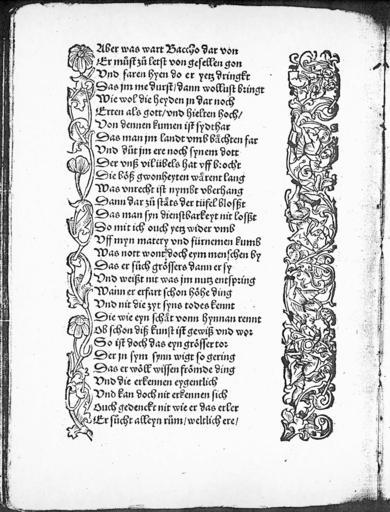 Aber was wart Baccho dar von
Er můst zů letst von gesellen gon
Vnd faren hyen do er yetz dringkt
Das jm me durst / dann wollust bringt
Wie wol die heyden jn dar noch
Erten als gott / vnd hielten hoch /
Von dennen kumen ist sydthar
Das man jm landt vmb bächten far
Vnd důt jm ere noch synem dott
Der vnß vil übels hat vff brocht
Die böß gwonheyten wärent lang
Was vnrecht ist nymbt vberhang
Dann dar zů stäts der tüfel bloßt
Das man syn dienstbarkeyt nit loßt
So mit ich ouch yetz wider vmb
Vff myn matery vnd fürnemen kumb
Was nott wont doch eym menschen by
Das er sůch grössers dann er sy
Vnd weißt nit was jm nutz entspring
Wann er erfart schon höhe ding
Vnd nit die zyt syns todes kennt
Die wie eyn schät vonn hynnan rennt
Ob schon diß kunst ist gewiß vnd wor
So ist doch das eyn grösser tor
Der jn sym synn wigt so gering
Das er wöll wissen frömde ding
Vnd die erkennen eygentlich
Vnd kan doch nit erkennen sich
Ouch gedenckt nit wie er das erler
Er sůcht alleyn rům / weltlich ere /